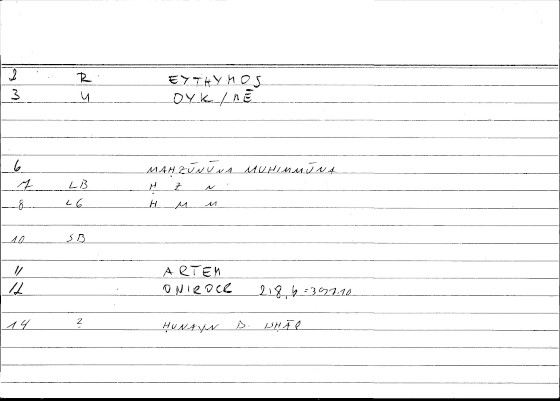 2 R EYTHYMOS
3 U OYK/MĒ
6 MAḤZŪNŪNA MUHIMMŪNA
7 LB Ḥ Z N
8 LG H M M
10 SB
11 ARTEM
12 ONIROCR 218,6 =
14 ? ḤUNAYN B. ISḤĀQ